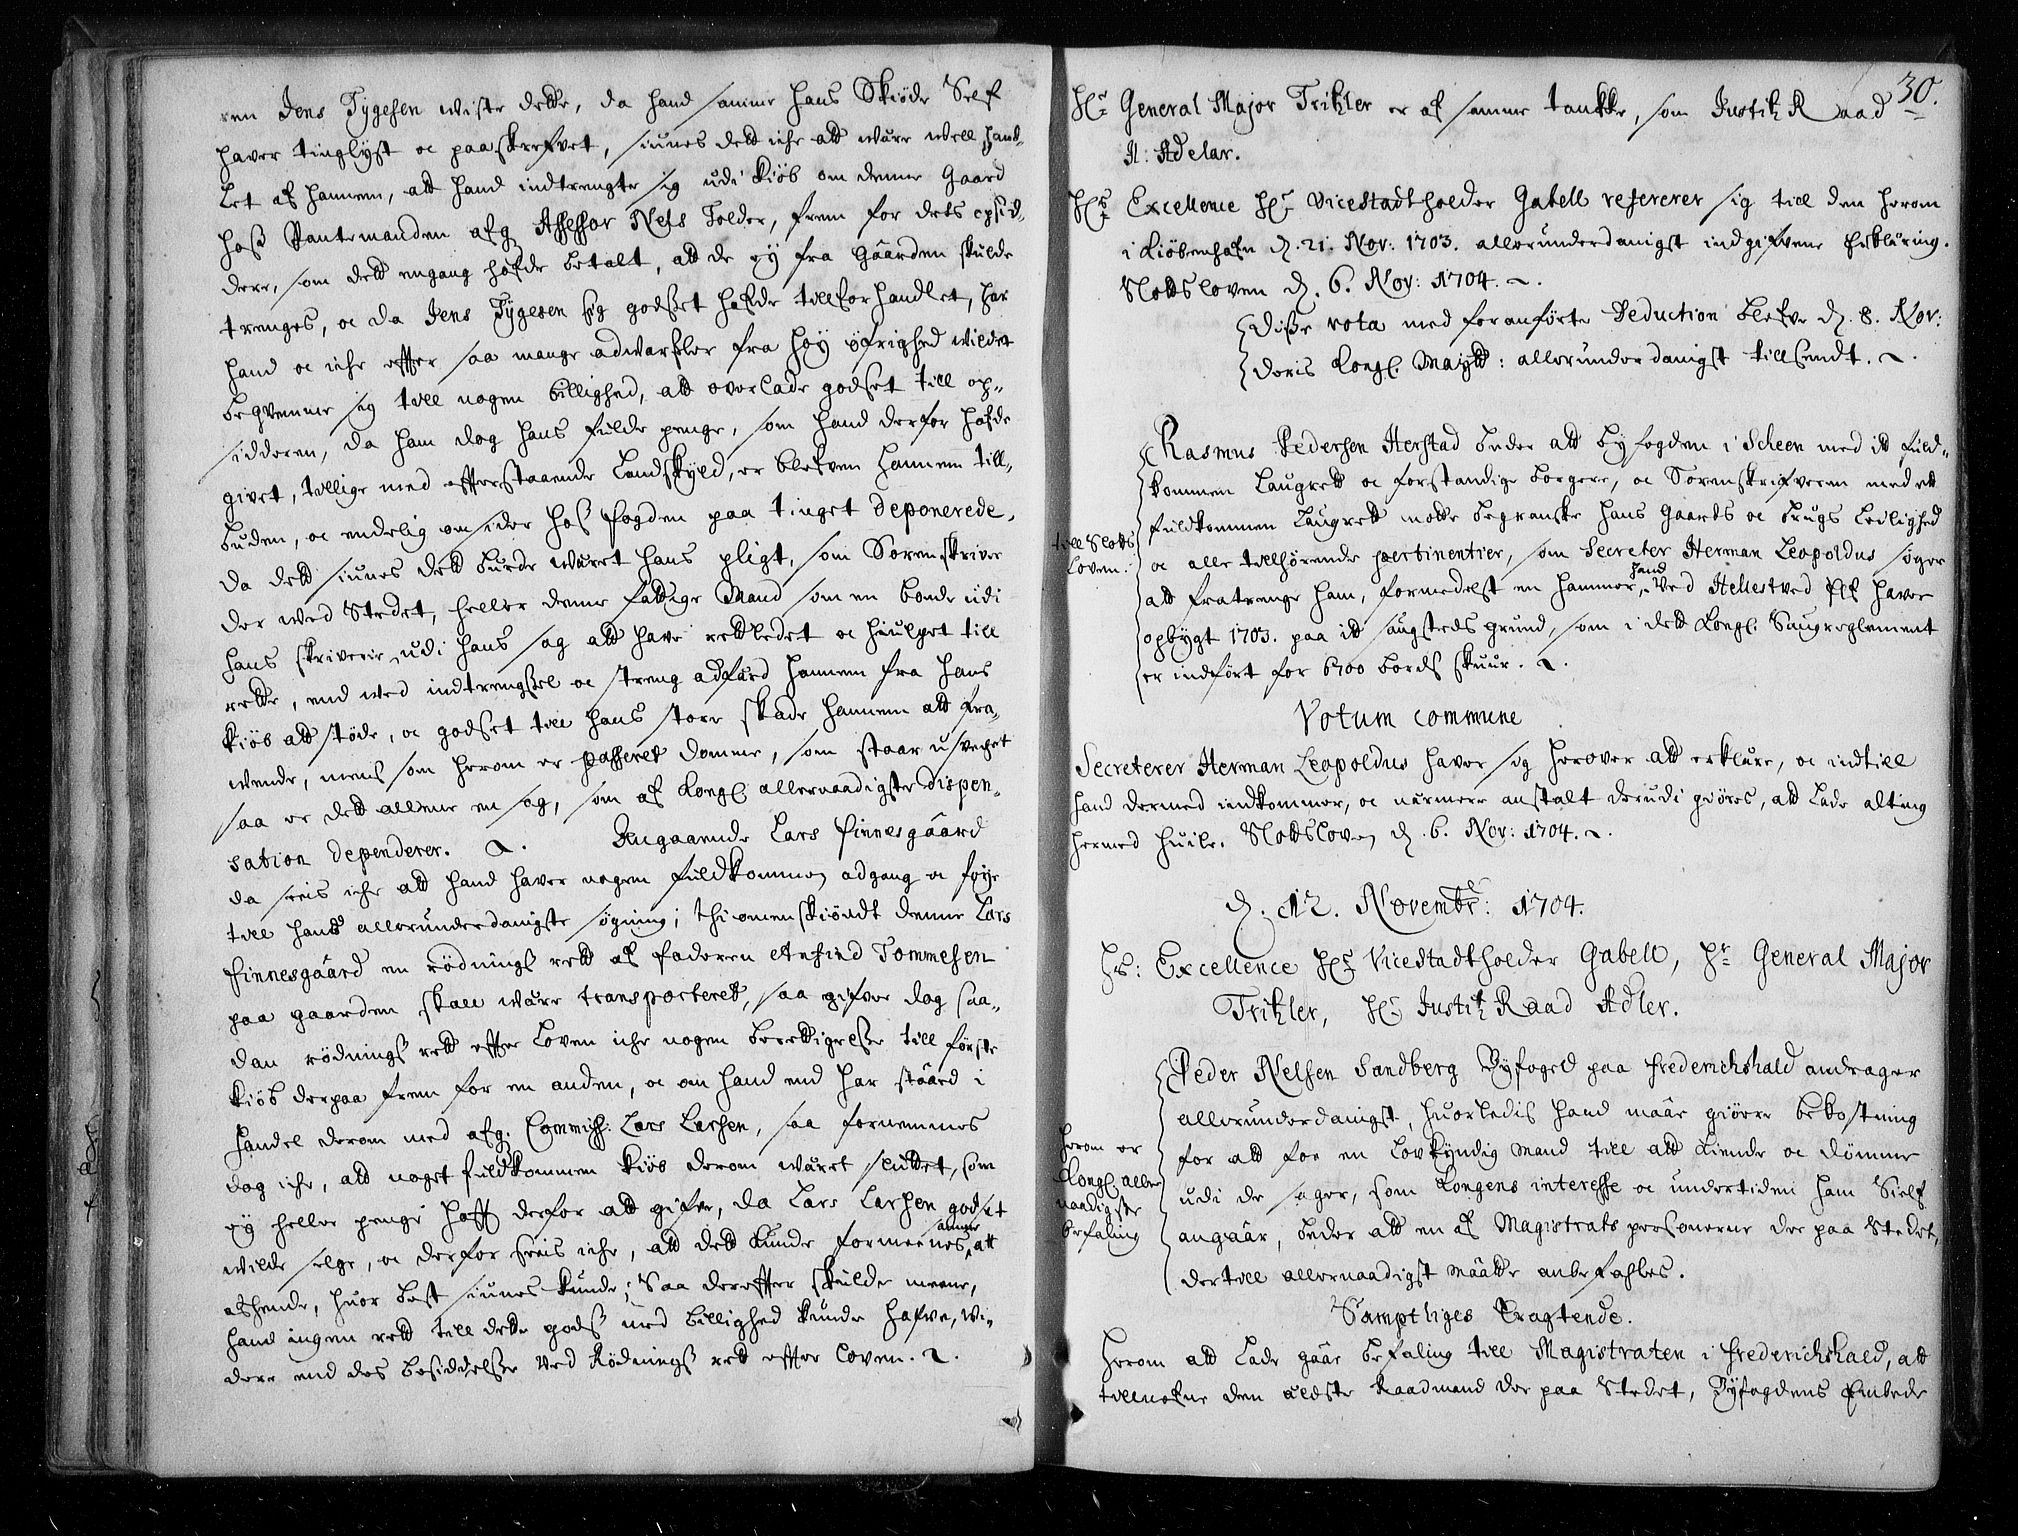 ren Jens Tygesen wiste dette, da hand samme hans Skiøde Self
haver tinglyst oc paaskrefvet, siunes dett iche att være well hand-
let af hannem, att hand indtrengte sig udi kiøb om denne Gaard
hoß Pantemanden afg Assessor Nels Tolder, frem for dets opsid-
dere, som dett engang hafde betalt, att de ey fra Gaarden skulde
trenges, oc da Jens Tygesen sig godset hafde tillforhandlet, har
hand oc iche effter saa mange adwarsler fra høy øfrighed wildet
beqvemme sig till nogen billighed, att overlade godset till op-
sidderen, da ham dog hans fulde penge, som hand derfor hafde
givet, tillige med efterstaaende Landskyld, er blefven hannem till-
buden, oc endelig omsider hos fogden paa tinget deponerede,
da dett siunes dett burde været hans pligt, som Sorenskriver
der wed Stedet, heller denne fattige Mand som en bonde udi
hans skriverie udi hans sag att have rettledet oc hiulpet till
rette, end wed indtrengsel oc streng adfærd hannem fra hans
kiøb att støde, oc godset till hans store skade hannem att fra-
wende, mens som herom er passeret domme, som staar usvechet
saa er dett allene en sag, som af Kongl allernaadigste dispen-
sation dependerer. Angaaende Lars Finnesgaard
da sees iche att hand haver nogen fuldkommen adgang oc føye
till hans allerunderdanigste søgning; thi omenskiøndt denne Lars
Finnesgaard en rødnings rett af faderen Anfind Tommesen
paa gaarden skall være transporteret, saa gifver dog saa-
dan rødnings rett effter Loven iche nogen berettigelse till første
kiøb derpaa frem for en anden, oc om hand end har staaed i
handel derom med afg. Commiss: Lars Larsen, saa fornemmes
dog iche, att noget fuldkommen kiøb derom været sluttet, som
ey heller penge hafft derfor att gifve, da Lars Larsen godset
wilde selge, oc derfor sees iche, att dett kunde formeenes samme att
afhende, huor best siunes kunde; Saa derefter skulde meene,
hand ingen rett till dette gods med billighed kunde hafve, wi-
dere end des besiddelse wed Rødnings rett effter Loven.
30.
Hr General Major Tritzler er af samme tankke, som Justitz Raad
N: Adelar.
Hs Excellence Hr Vicestadtholder Gabell refererer sig till den herom
i Kiøbenhafn d. 21. Nov: 1703. allerunderdanigst indgifvene Erklæring.
Slottsloven d. 6. Nov: 1704.
Disse vota med foranførte Deduction blefve d. 8. Nov:
Deris Kongl Maytt: allerunderdanigst tillsendt.
till Slotts
Loven.
Rasmus Pedersen Herstad beder att byfogden i Scheen med itt fuld-
kommen Laugrett oc forstandige borgere, oc Sorenskrifveren med ett
fuldkommen Laugrett motte begranske hans Gaards oc brugs Leilighed
oc alle tillhørende pertinentier, som Secreter Herman Leopoldus søger
att fratrenge ham, formedelst en hammer, hand wed Hellestved Elf haver
opbygt 1703. paa itt saugsteds grund, som i dett Kongl. Saugreglement
er indført for 6700 bords skuur.
Votum commune
Secreterer Herman Leopoldus haver sig herover att erklære, oc indtill
hand dermed indkommer, oc nærmere anstalt derudi giøres, att lade alting
hermed huile. Slottsloven d. 6. Nov: 1704.
d. 12. Novembr: 1704.
Hs: Excellence Hr Vicestadtholder Gabell, Hr General Major
Tritzler, Hr Justitz Raad Adler.
herom er
Kongl aller
naadigste
befaling
Peder Nelsen Sandberg Byfoged paa Frederichshald andrager
allerunderdanigst, huorledis hand maae giøre bekostning
for att foe en Lovkyndig mand till att kiende oc dømme
udi de sager, som Kongens interesse oc undertiden ham Sielf
angaar, beder att en af Magistrats personerne der paa Stedet,
dertill allernaadigst maatte anbefahles.
Samptliges Eragtende.
Herom att lade gaae befaling till Magistraten i Frederichshald, att
tillnefne den eldste Raadmand der paa Stedet, Byfogdens Embede